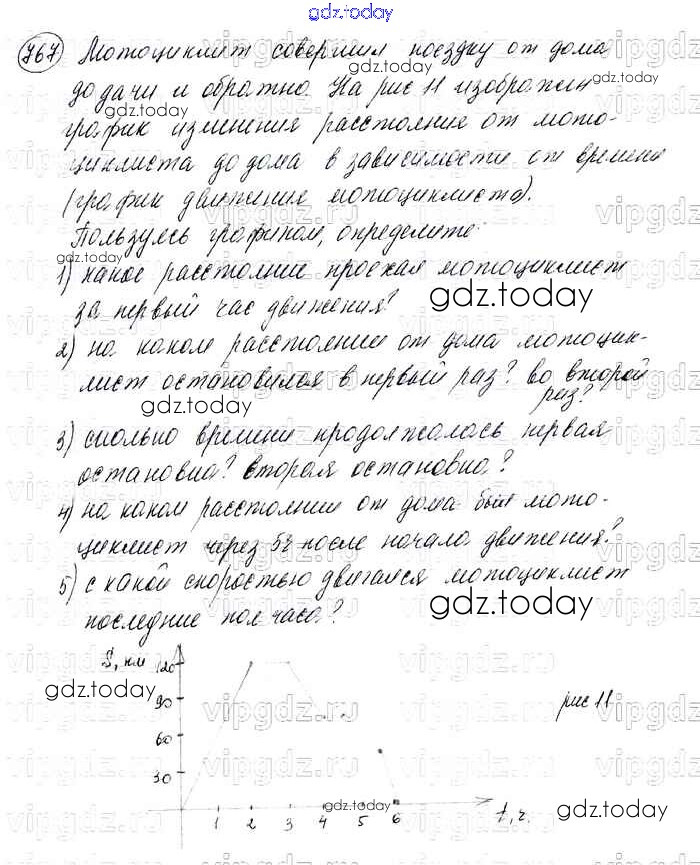 gdz.today
767 Мотоциклист совершил поездку от дома
до дачи и обратно. На рис 11 изображен
график изменения расстояния от мото-
циклиста до дома в зависимости от времени
(график движения мотоциклиста).
Пользуясь графиком, определите:
1) какое расстояние проехал мотоциклист
за первый час движения?
2) на каком расстоянии от дома мотоцик-
лист остановился в первый раз? во второй
раз?
3) сколько времени продолжалась первая
остановка? вторая остановка?
4) на каком расстоянии от дома был мото-
циклист через 5ч после начала движения?
5) с какой скоростью двигался мотоциклист
последние пол часа?
S, км
120
90
60
30
1 2 3 4 5 6 t, ч.
рис 11
gdz.today
vipgdz.ru